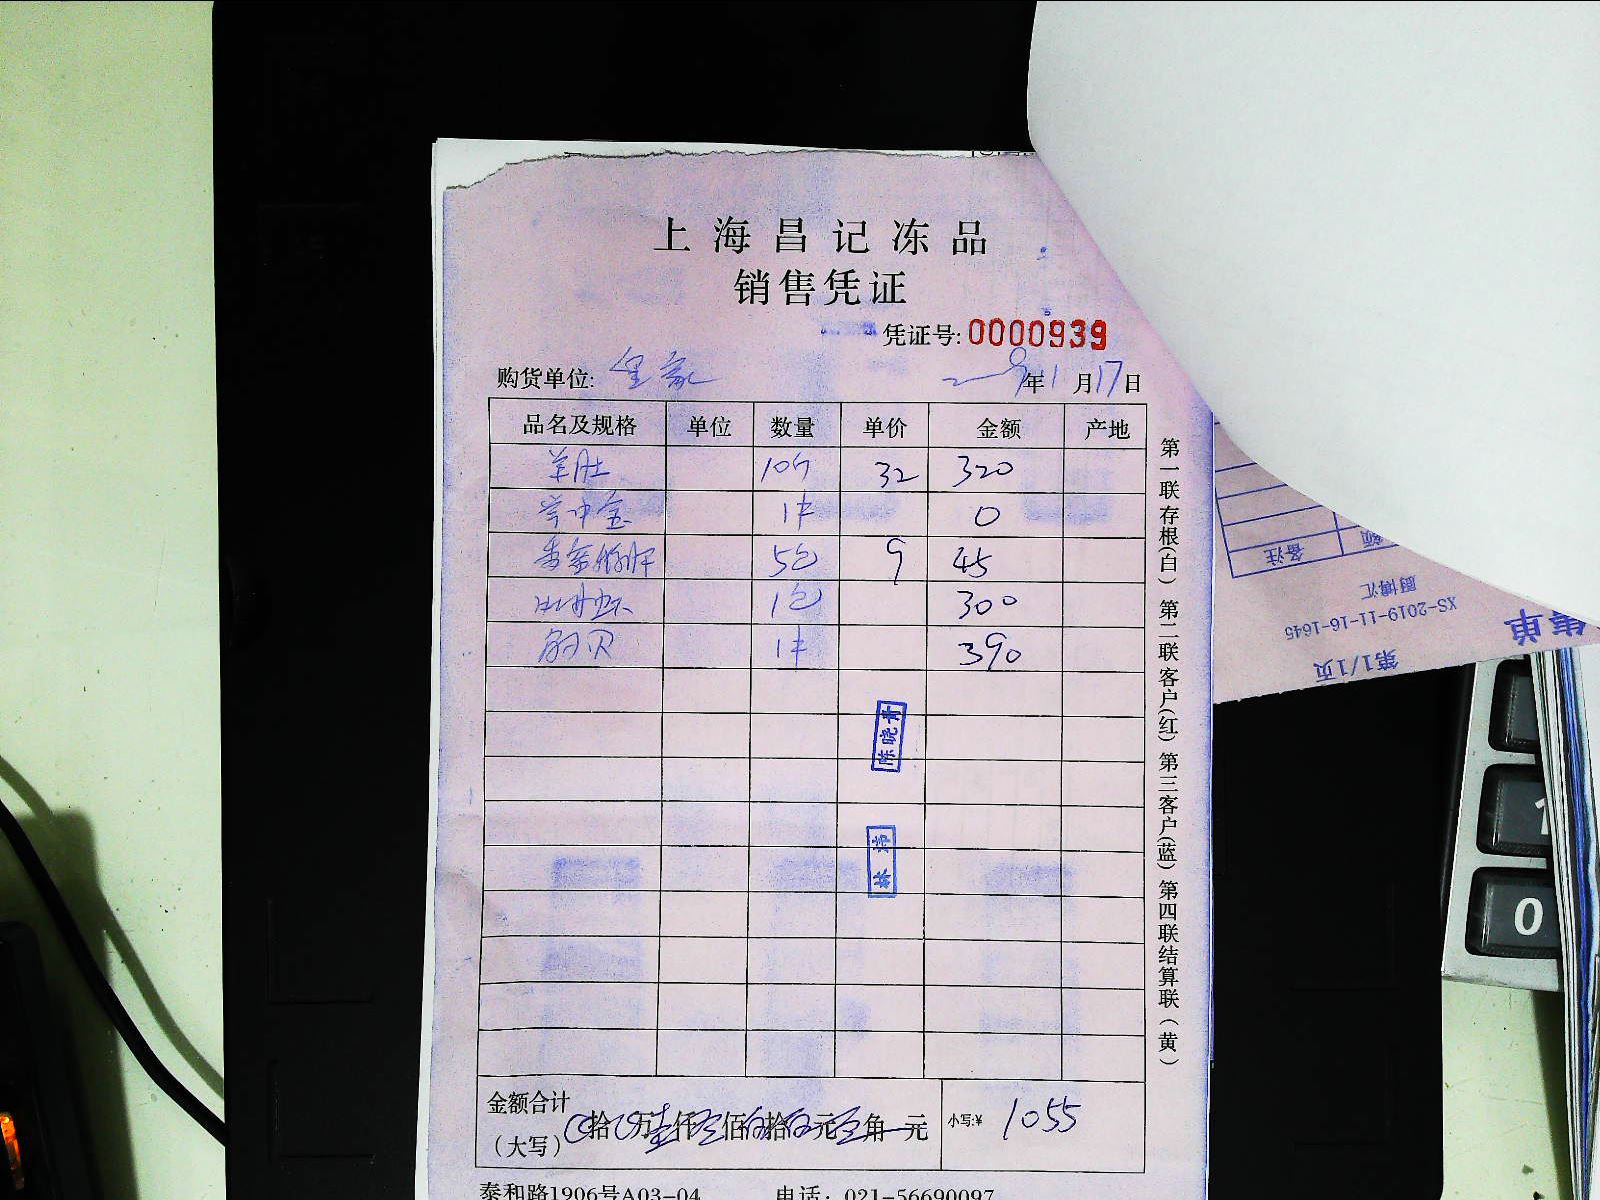 上海昌记冻品
销售凭证
凭证号: 0000939
购货单位: 皇家 年11月17日
品名及规格 单位 数量 单价 金额 产地
羊肚 10斤 32 320
1件 0
5包 9 45
1包 300
1件 390
陈晓青
林沛
金额合计
(大写) 拾万仟佰拾元角元 小写:¥ 1055
泰和路1906号A03-04 电话: 021-56690097
第一联存根(白) 第二联客户(红) 第三客户(蓝) 第四联结算联(黄)
备注 额
厨博汇
XS-2019-11-16-1645
售单
第1/1页
1
0